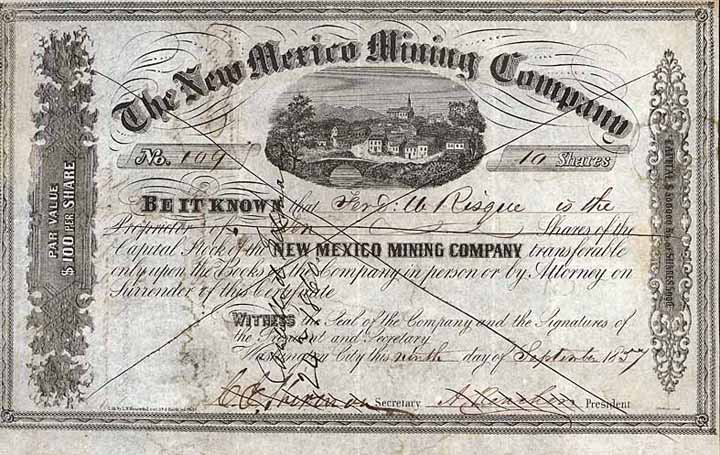 The New Mexico Mining Company
No. 109
10 Shares
PAR VALUE
$100 PER SHARE
BE IT KNOWN that Ferd: W Risque is the
Proprietor of Ten Shares of the
Capital Stock of the NEW MEXICO MINING COMPANY transferable
only upon the Books of the Company in person or by Attorney on
Surrender of this Certificate
WITNESS the Seal of the Company and the Signatures of
the President and Secretary.
Washington City this ninth day of September 1857
Secretary
President